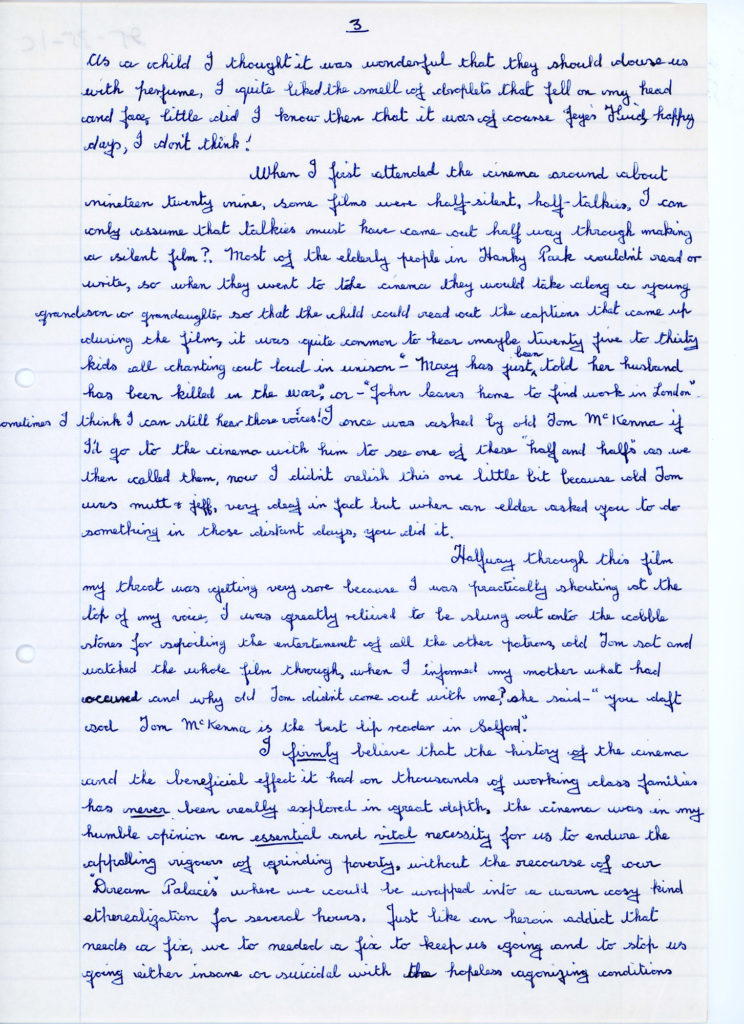 3
As a child I thought it was wonderful that they should douse us
with perfume, I quite liked the smell of droplets that fell on my head
and face, little did I know then that it was of course Jeye's Fluid, happy
days, I don't think!
When I first attended the cinema around about
nineteen twenty nine, some films were half-silent, half-talkies, I can
only assume that talkies must have came out half way through making
a silent film?. Most of the elderly people in Hanky Park couldn't read or
write, so when they went to the cinema they would take along a young
grandson or grandaughter so that the child could read out the captions that came up
during the film, it was quite common to hear maybe twenty five to thirty
kids all chanting out loud in unison - "Mary has just been told her husband
has been killed in the war", or - "John leaves home to find work in London".
ometimes I think I can still hear those voices! I once was asked by old Tom McKenna if
I'd go to the cinema with him to see one of these "half and halfs" as we
then called them, now I didn't relish this one little bit because old Tom
was mutt & jeff, very deaf in fact but when an elder asked you to do
something in those distant days, you did it.
Halfway through this film
my throat was getting very sore because I was practically shouting at the
top of my voice, I was greatly relieved to be slung out onto the cobble
stones for spoiling the entertainment of all the other patrons, old Tom sat and
watched the whole film through, when I informed my mother what had
occured and why old Tom didn't come out with me,? she said - "you daft
sod Tom McKenna is the best lip reader in Salford".
I firmly believe that the history of the cinema
and the beneficial effect it had on thousands of working class families
has never been really explored in great depth, the cinema was in my
humble opinion an essential and vital necessity for us to endure the
appalling rigours of grinding poverty, without the recourse of our
"Dream Palace's" where we could be wrapped into a warm cosy kind
etherealization for several hours. Just like an heroin addict that
needs a fix, we to needed a fix to keep us going and to stop us
going either insane or suicidal with the hopeless agonizing conditions